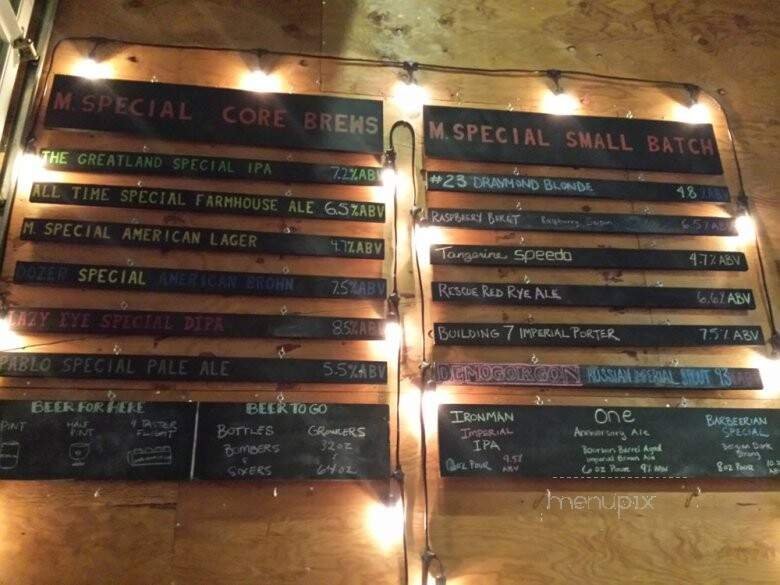 M. SPECIAL CORE BREWS
THE GREATLAND SPECIAL IPA 7.2%ABV
ALL TIME SPECIAL FARMHOUSE ALE 6.5%ABV
M. SPECIAL AMERICAN LAGER 4.7%ABV
DOZER SPECIAL AMERICAN BROWN 7.5%ABV
LAZY EYE SPECIAL DIPA 8.5%ABV
PABLO SPECIAL PALE ALE 5.5%ABV
BEER FOR HERE
PINT
HALF PINT
4 TASTER FLIGHT
BEER TO GO
BOTTLES
BOMBERS
&
SIXERS
GROWLERS
32OZ
64OZ
M. SPECIAL SMALL BATCH
#23 DRAYMOND BLONDE 4.8
RASPBERRY BERET Raspberry Saison 6.5%AB
Tangerine Speedo 4.7%ABV
RESCUE RED RYE ALE 6.6%ABV
BUILDING 7 IMPERIAL PORTER 7.5%ABV
DEMOGORGON RUSSIAN IMPERIAL STOUT 9.3
IRONMAN
IMPERIAL
IPA
OZ POUR 9.5% ABV
One
Anniversary Ale
Bourbon Barrel Aged
Imperial Brown Ale
6 oz Pour 9% ABV
BARBEERIAN
SPECIAL
Belgian Dark
Strong
8oz POUR
menupix